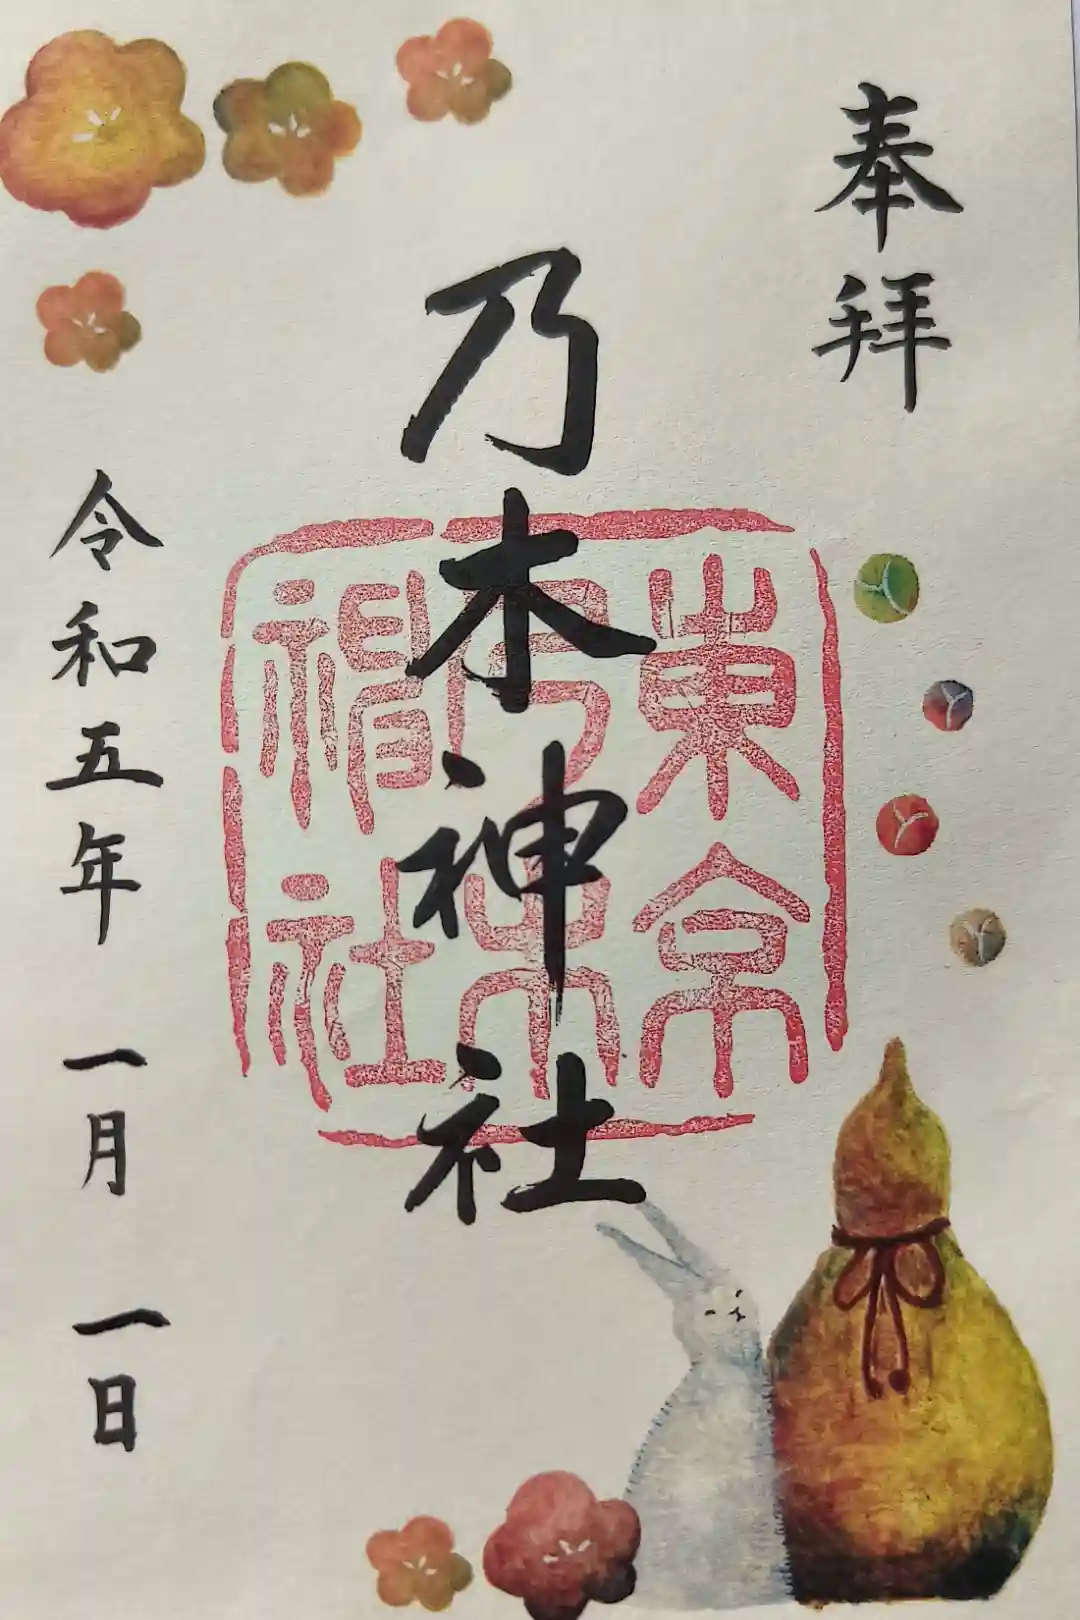 奉拝
乃木神社
東京
乃木
神社
令和五年 一月 一日